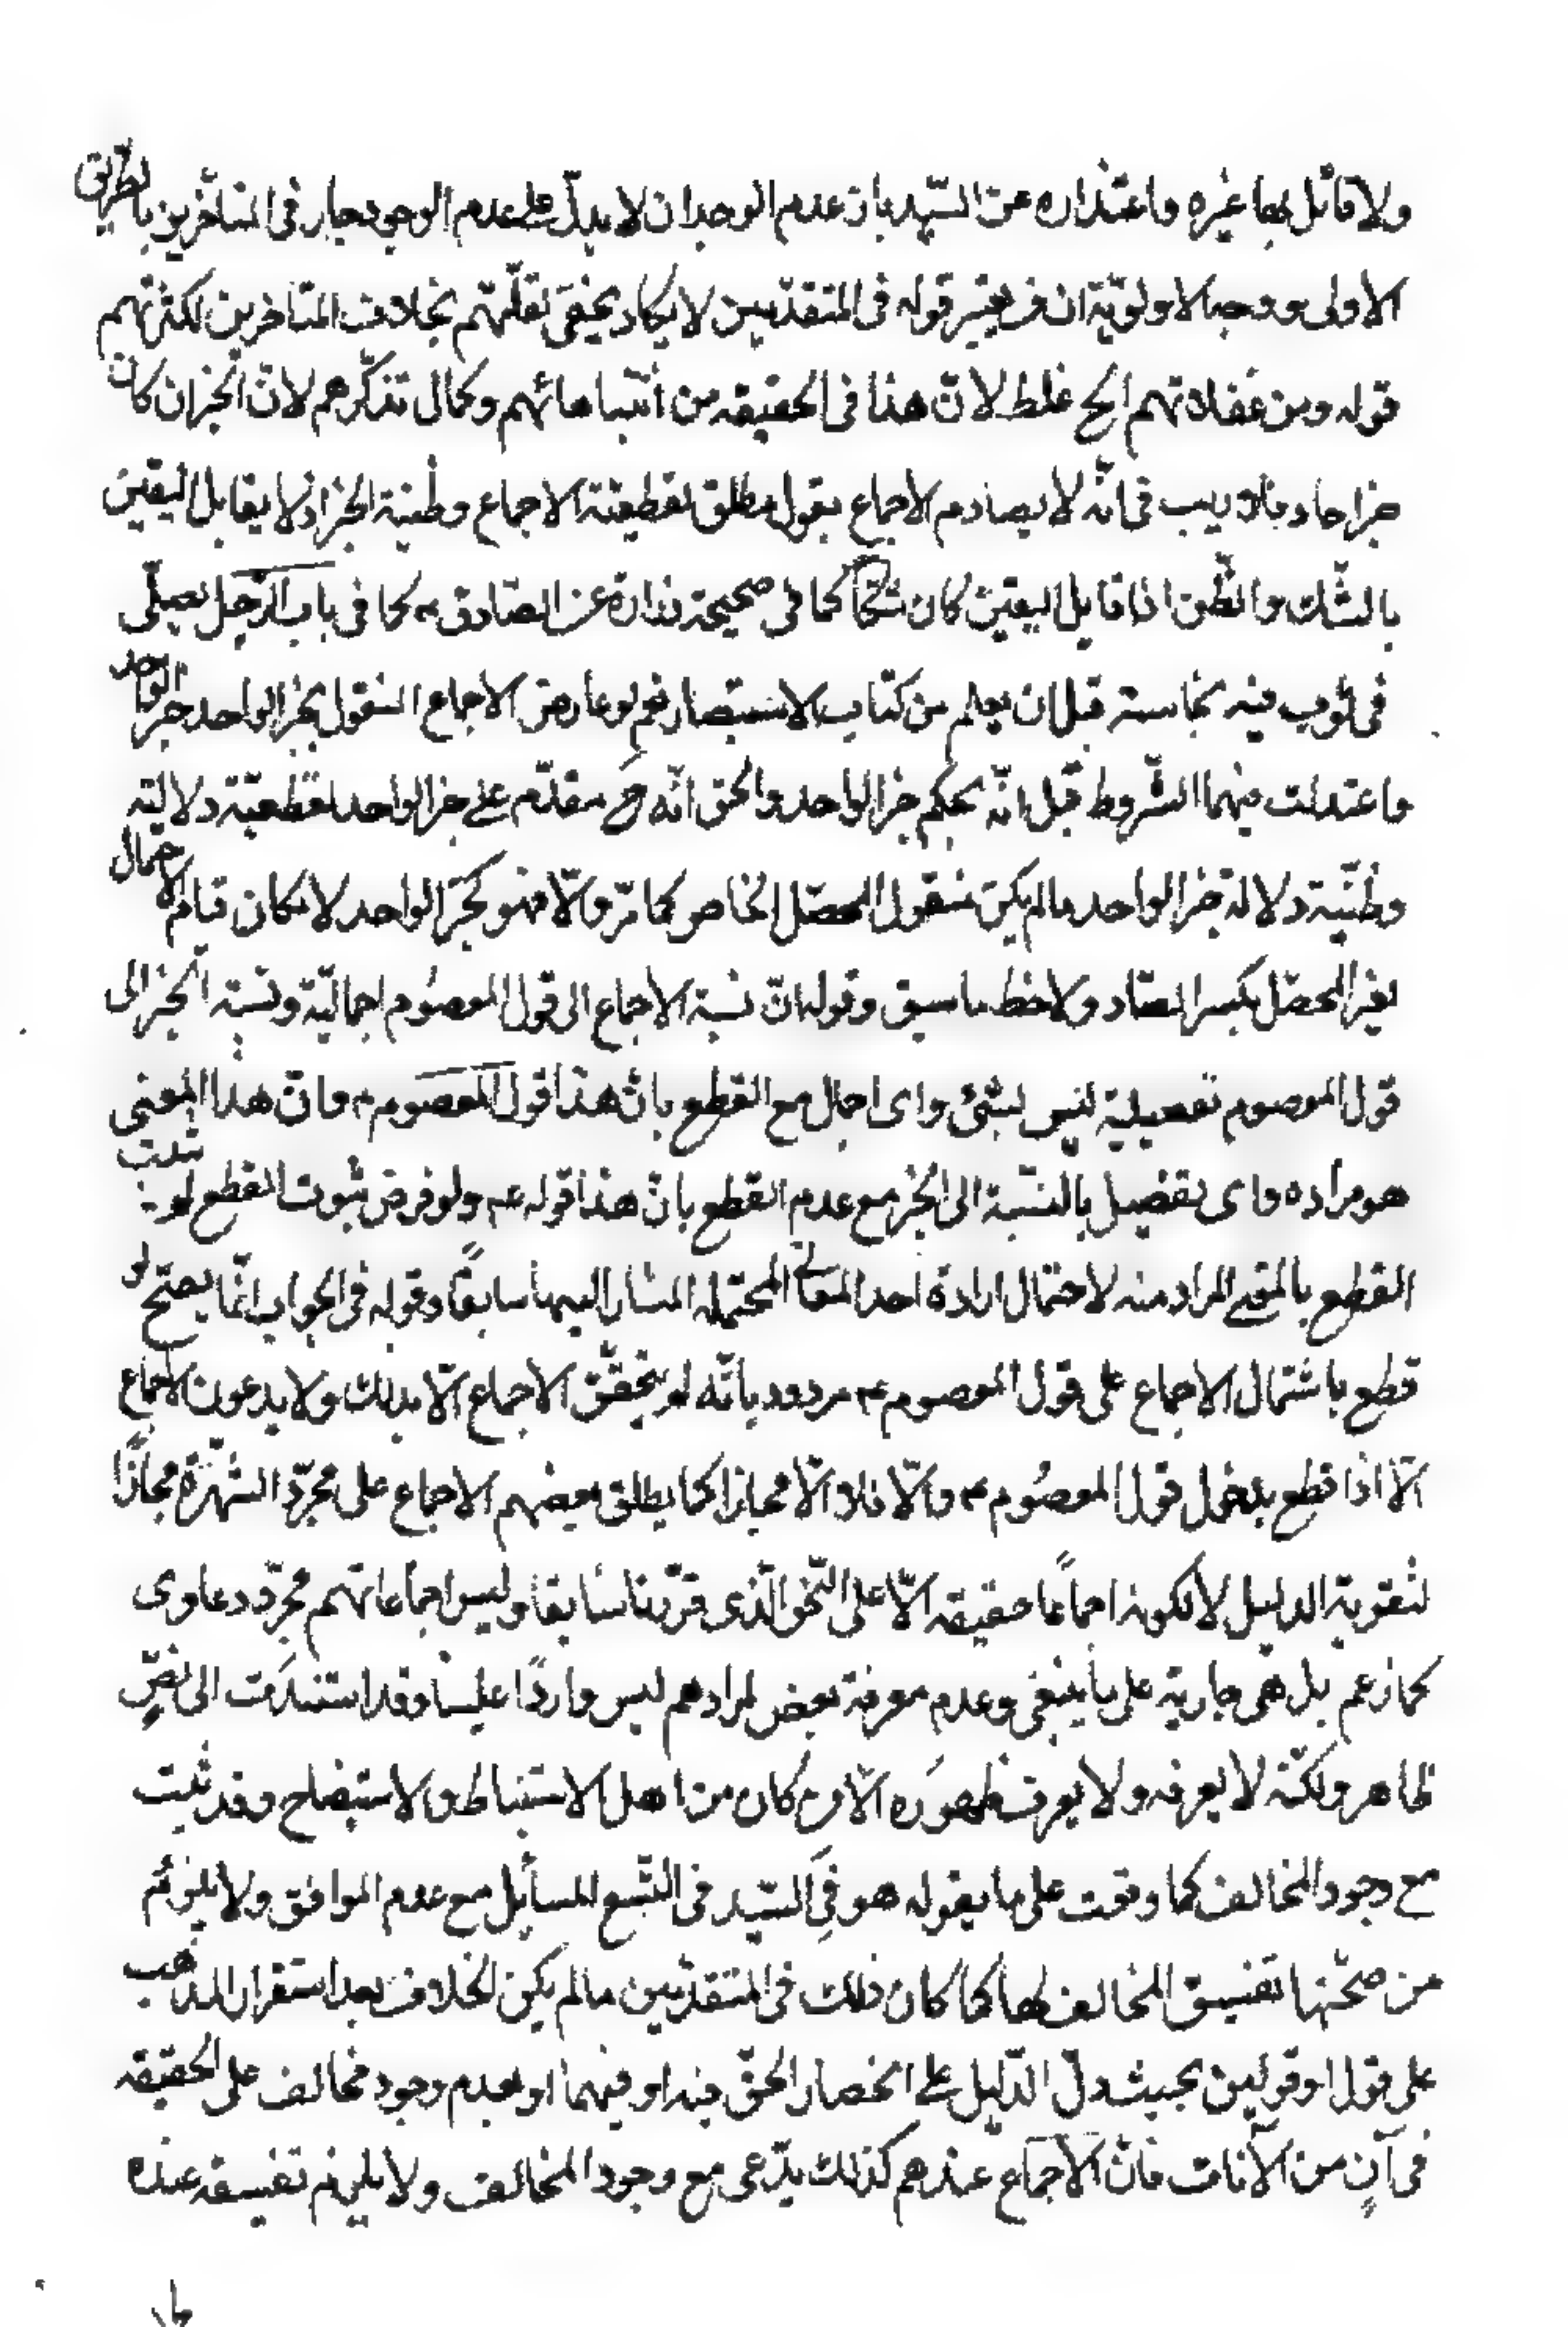 ولا قائل بها غيره واعتذاره عن الشهيد بان عدم الوجدان لا يدلّ على عدم الوجود جار في المتأخرين بالطريق
الاولى ووجه الاولويّة ان من يعتبر قوله في المتقدمين لا يكاد يخفى لقلّتهم بخلاف المتأخرين لكثرتهم
قوله ومن غفلاتهم الخ غلط لانّ هذا في الحقيقه من انتباهاتهم وكمال تذكّرهم لانّ الخبر ان كان
خبر احاد فلا ريب في انّه لا يصادم الاجماع بقول مطلق لقطعيّة الاجماع وظنية الخبر اذ لا يقابل اليقين
بالشّك والظّن اذا قابل اليقين كان شكّا كما في صحيحة زرارة عن الصّادق ع كما في باب الرّجل يصلّي
في ثوب فيه نجاسة قبل ان يعلم من كتاب الاستبصار نعم لو عارض الاجماع المنقول بخبر الواحد خبر الواحد
واعتدلت فيهما الشّروط قيل انّه بحكم خبر الواحد والحق انّه ح مقدّم على خبر الواحد لقطعيّة دلالته
وظنّية دلالة خبر الواحد ما لم يكن منقول المحصّل الخاص كما مرّ والّا فهو كخبر الواحد لامكان قيام الاحتمال
لغير المحصّل بكسر الصّاد ولاحظ ما سبق وقوله انّ نسبة الاجماع الى قول المعصوم اجماليّة ونسبة الخبر الى
قول المعصوم تفصيلية ليس بشئ واى اجمال مع القطع بانّ هذا قول المعصوم ع وانّ هذا المعنى
هو مراده واى تفصيل بالنسّبة الى الخبر مع عدم القطع بانّ هذا قوله ع ولو فرض ثبوت القطع لم يثبت
القطع بالمعنى المراد منه لاحتمال ارادة احد المعاني المحتمله المشار اليها سابقًا وقوله في الجواب انّما يصحّ لو
قطع باشتمال الاجماع على قول المعصوم ع مردود بانّه لم يتحقّق الاجماع الّا بذلك ولا يدعون الاجماع
الّا اذا قطع بدخول قول المعصُوم ع والّا فلا الّا مجازا كما يطلق بعضهم الاجماع على مجرّد الشّهرة مجازًا
لتقوية الدليل لا لكونه اجماعًا حقيقه الّا على النّحو الّذى قرّرنا سابقا وليس اجماعاتهم مجرّد دعاوى
كما زعم بل هى جارية على ما ينبغى وعدم معرفة بعض لمرادهم ليس واردًا علينا وقد استندَت الى نصٍّ
ظاهر ولكنّه لا يعرفه ولا يعرف ظهورَه الّا من كان من اهل الاستنباط والاستيضاح وقد ثبت
مع وجود المخالف كما وقفت على ما يقوله هو في السّيد في التتبّع للمسائل مع عدم الموافق ولا يلزم
من صحّتها تفسيق المخالف لها كما كان ذلك في المتقدّمين ما لم يكن الخلاف بعد استقرار المذهب
على قول او قولين بحيث دلّ الدّليل على انحصار الحقّ فيه او فيهما او لعدم وجود مخالف على الحقيقه
في آنٍ من الآنات فانّ الاجماع عندهم كذلك يدّعى مع وجود المخالف ولا يلزم تفسيقه عنده